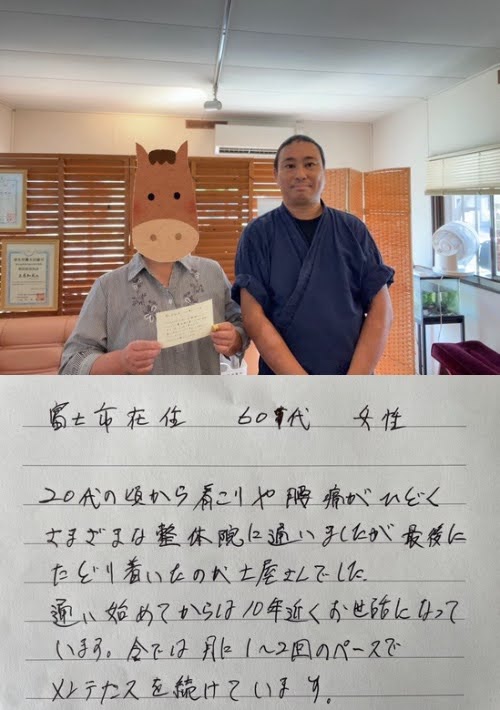 富士市在住 60代 女性
20代の頃から肩こりや腰痛がひどく
さまざまな整体院に通いましたが最後に
たどり着いたのが土屋さんでした
通い始めてからは10年近くお世話になって
います。今では月に1〜2回のペースで
メンテナスを続けています。